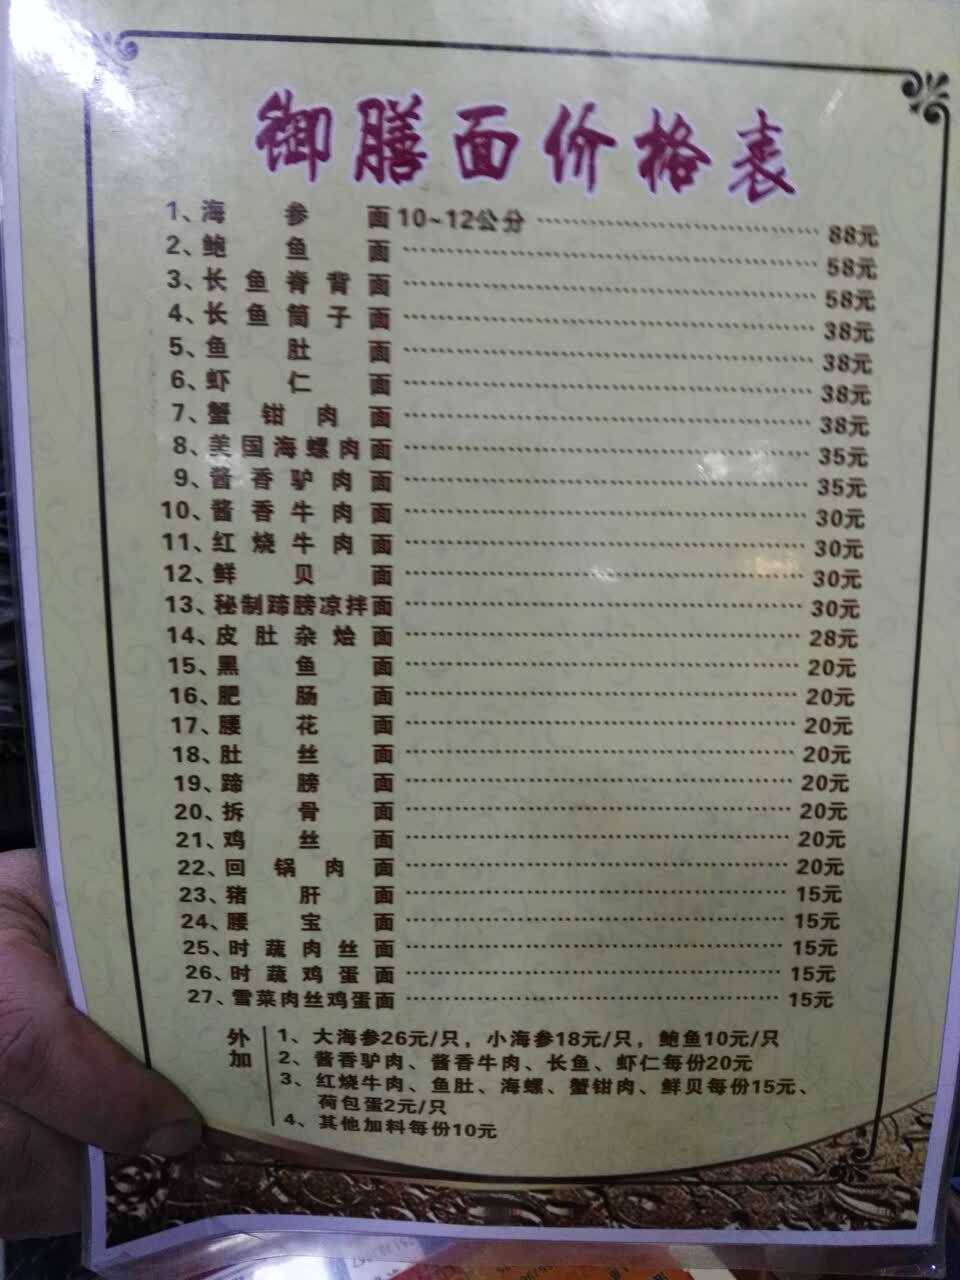 御膳面价格表
1、海参面10~12公分 88元
2、鲍鱼面 58元
3、长鱼脊背面 58元
4、长鱼筒子面 38元
5、鱼肚面 38元
6、虾仁面 38元
7、蟹钳肉面 38元
8、美国海螺肉面 35元
9、酱香驴肉面 35元
10、酱香牛肉面 30元
11、红烧牛肉面 30元
12、鲜贝面 30元
13、秘制蹄膀凉拌面 30元
14、皮肚杂烩面 28元
15、黑鱼面 20元
16、肥肠面 20元
17、腰花面 20元
18、肚丝面 20元
19、蹄膀面 20元
20、拆骨面 20元
21、鸡丝面 20元
22、回锅肉面 20元
23、猪肝面 15元
24、腰宝面 15元
25、时蔬肉丝面 15元
26、时蔬鸡蛋面 15元
27、雪菜肉丝鸡蛋面 15元
外加
1、大海参26元/只，小海参18元/只，鲍鱼10元/只
2、酱香驴肉、酱香牛肉、长鱼、虾仁每份20元
3、红烧牛肉、鱼肚、海螺、蟹钳肉、鲜贝每份15元、
荷包蛋2元/只
4、其他加料每份10元